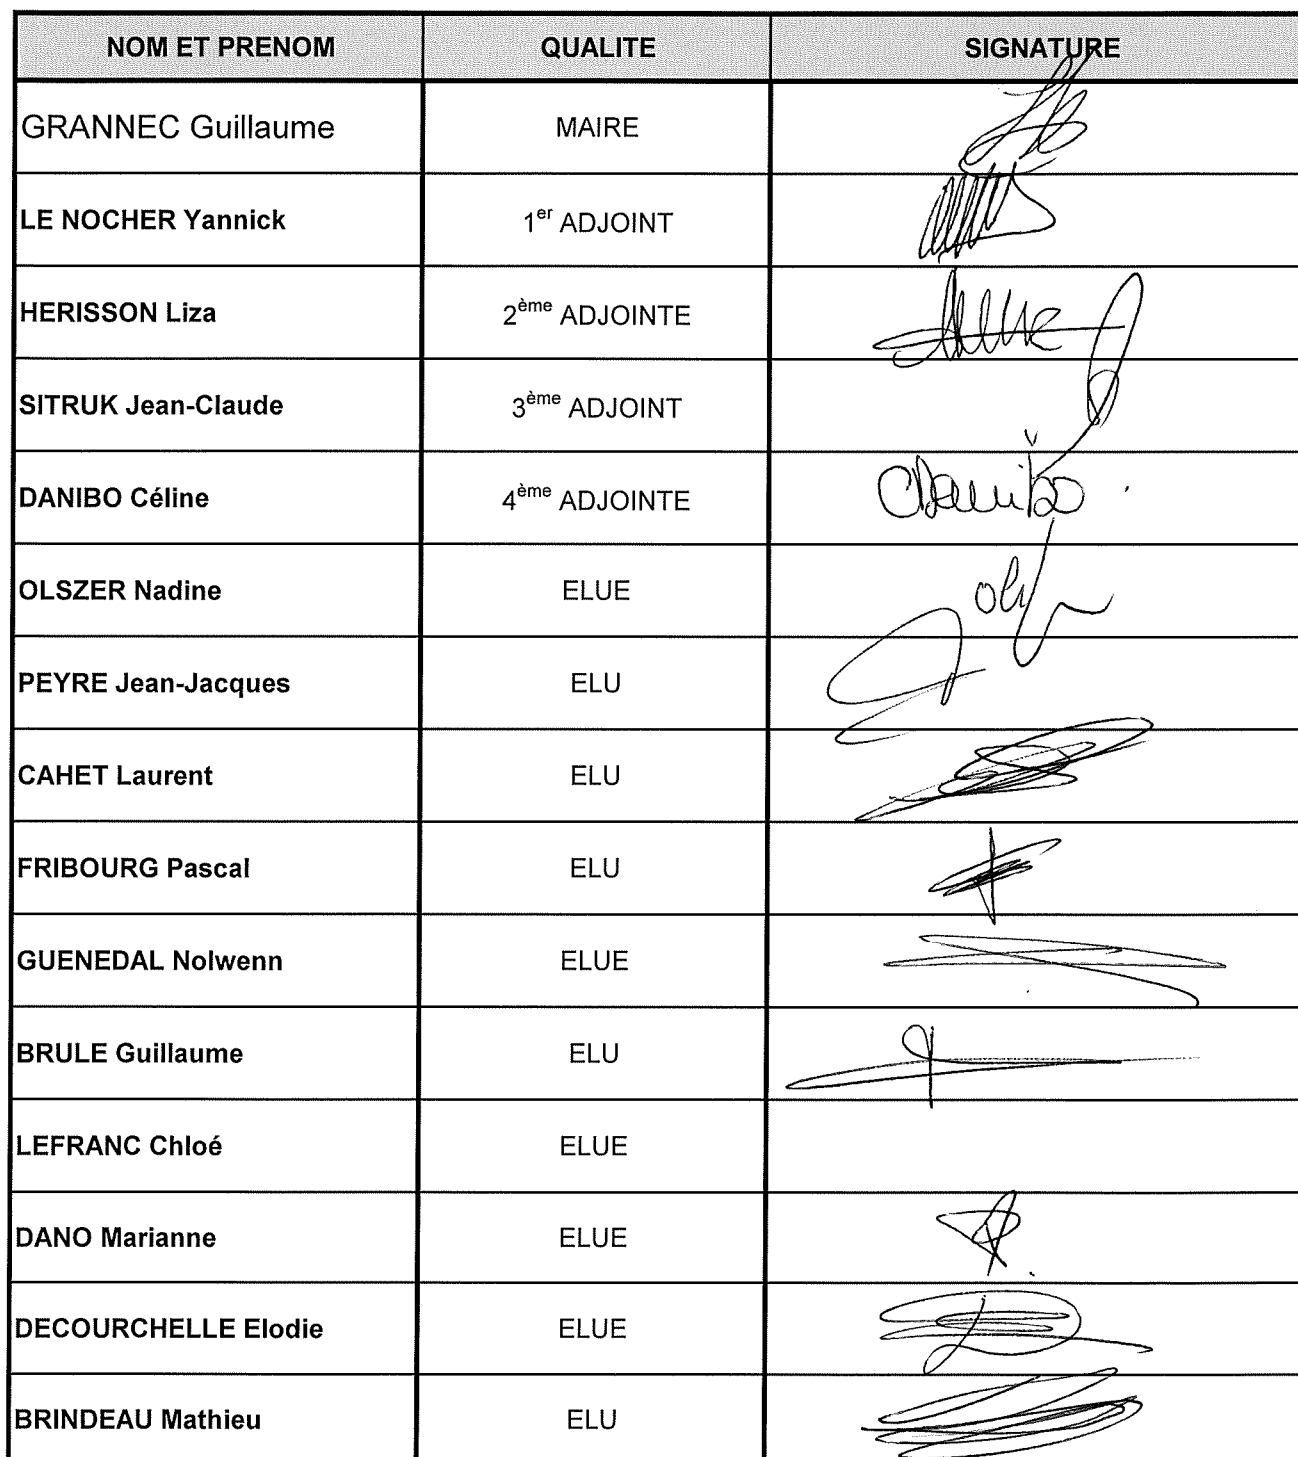 NOM ET PRENOM QUALITE SIGNATURE
GRANNEC Guillaume MAIRE
LE NOCHER Yannick 1er ADJOINT
HERISSON Liza 2ème ADJOINTE
SITRUK Jean-Claude 3ème ADJOINT
DANIBO Céline 4ème ADJOINTE CDanibo
OLSZER Nadine ELUE
PEYRE Jean-Jacques ELU
CAHET Laurent ELU
FRIBOURG Pascal ELU
GUENEDAL Nolwenn ELUE
BRULE Guillaume ELU
LEFRANC Chloé ELUE
DANO Marianne ELUE
DECOURCHELLE Elodie ELUE
BRINDEAU Mathieu ELU